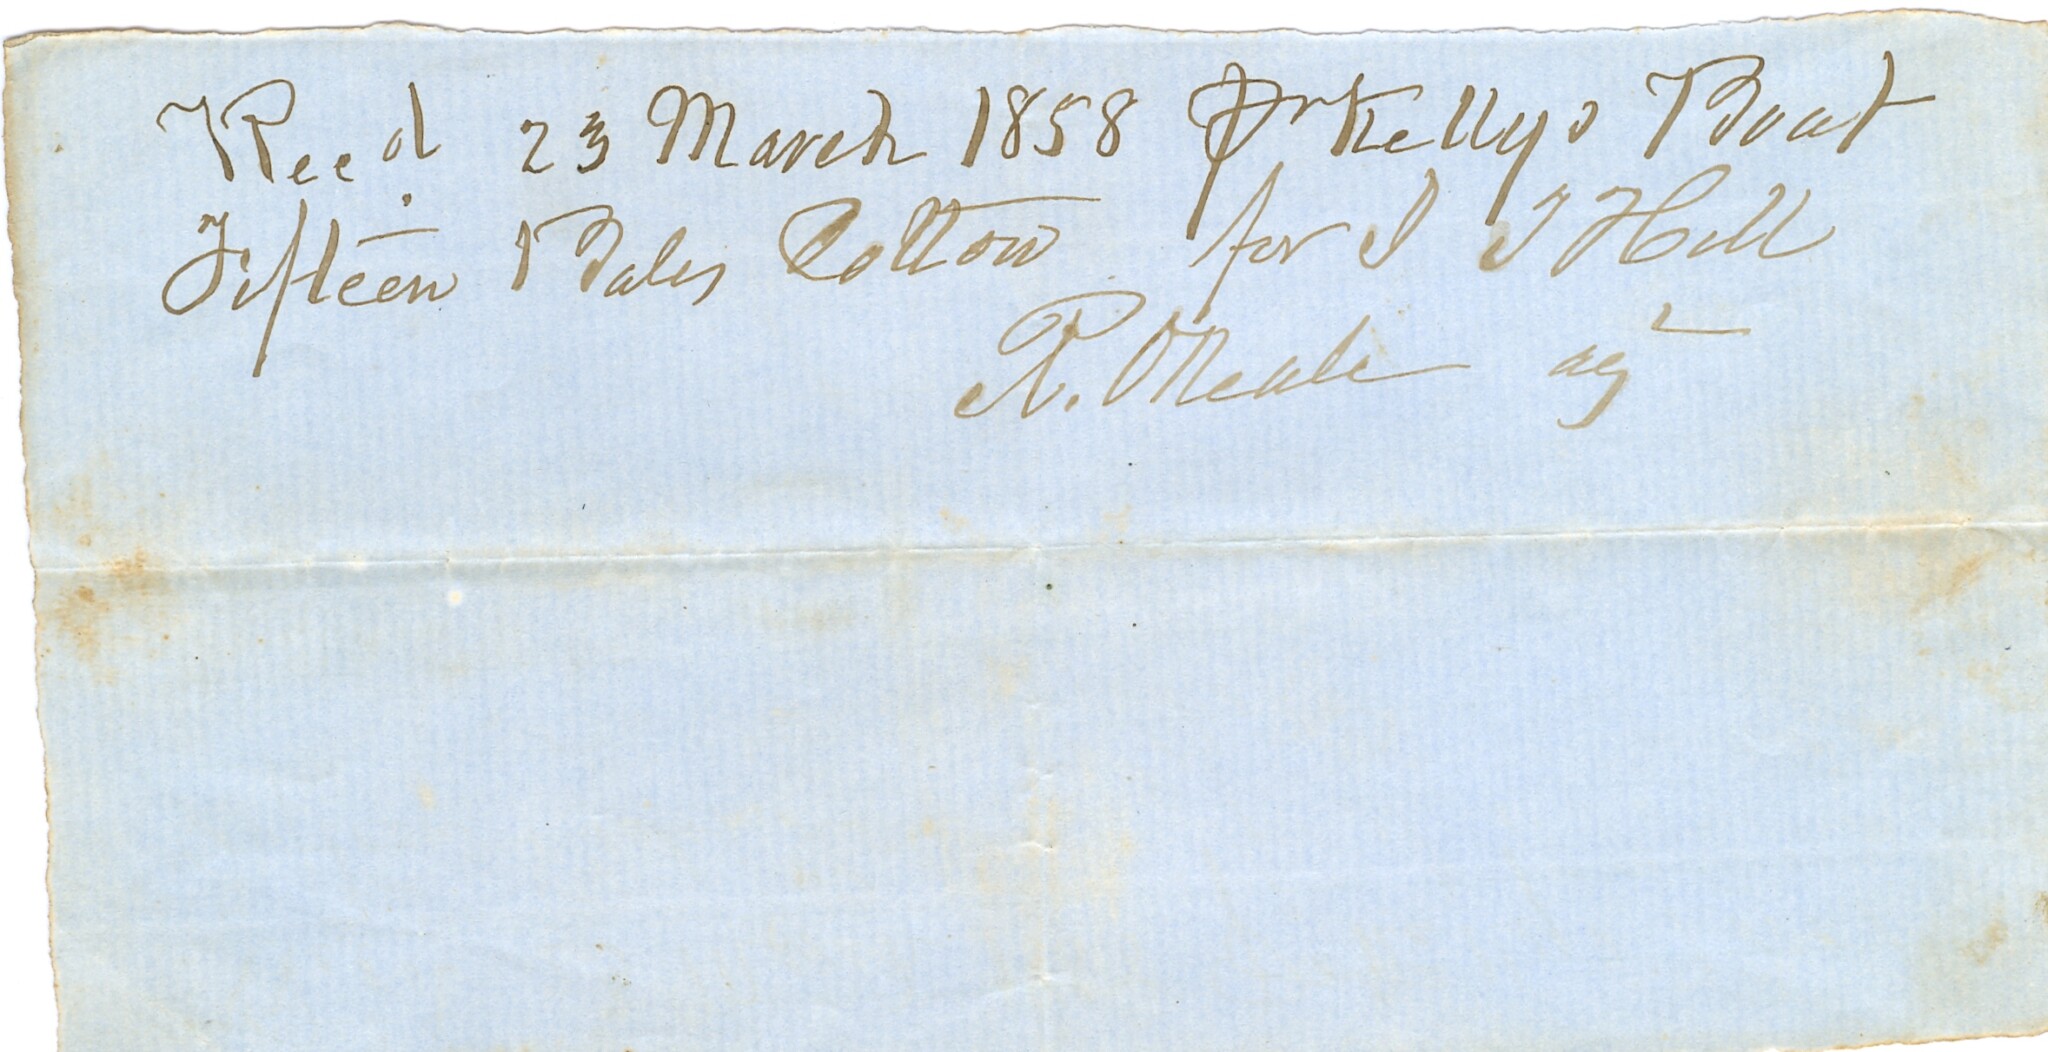 Recd 23 March 1858 Pr Kellys Boat
Fifteen Bales Cotton for I I Hill
R. ONeale agt